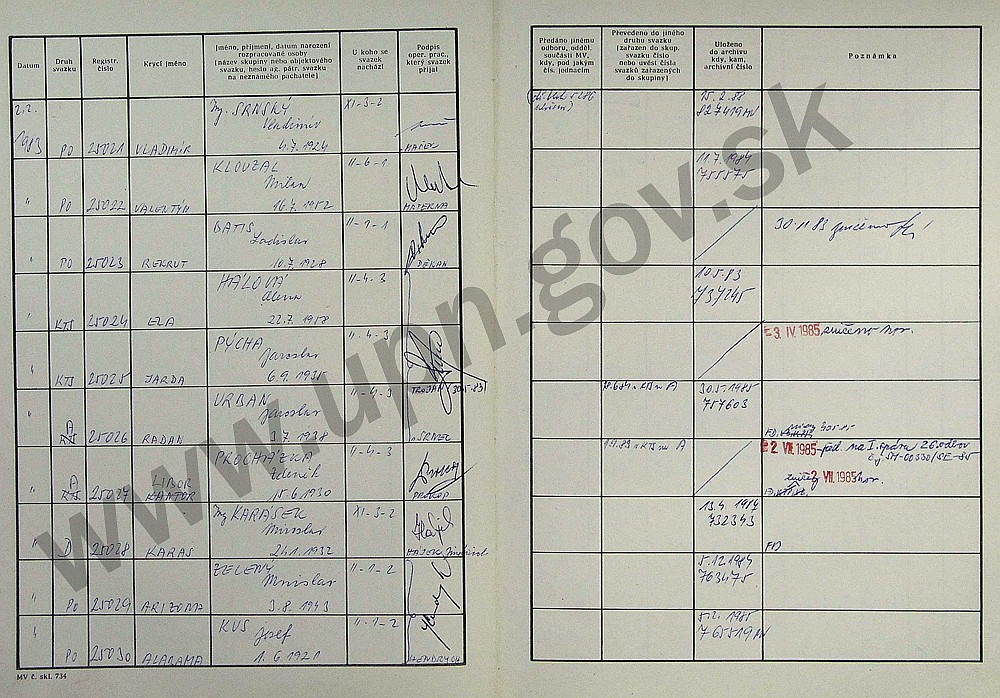 Datum
Druh svazku
Registr. číslo
Krycí jméno
Jméno, příjmení, datum narození
rozpracované osoby
(název skupiny nebo objektového
svazku, heslo ag. pátr. svazku
na neznámého pachatele)
U koho se
svazek
nachází
Podpis
oper. prac.,
který svazek
přijal
Předáno jinému
odboru, odděl.
součásti MV,
kdy, pod jakým
čís. jednacím
Převedeno do jiného
druhu svazku
(zařazen do skup.
svazku číslo
nebo uvést čísla
svazků zařazených
do skupiny)
Uloženo
do archivu
kdy, kam,
archivní číslo
Poznámka
2.2.
1983 PO 25021 VLADIMÍR
Ing. SRNSKÝ
Vladimír
4.7.1924
XI-3-2
MAČEK
15.2.88
827419 MV
" PO 25022 VALENTÝN
KLOUZAL
Milan
16.7.1952
II-6-1
MATERNA
11.7.1984
755575
" PO 25023 REKRUT
BATIS
Ladislav
10.7.1928
II-1-1
DĚKAN
30.11.83 zničeno
" KTS 25024 ELA
HÁLOVÁ
Alena
22.7.1958
II-4-3
10.5.83
737245
" KTS 25025 JARDA
PÝCHA
Jaroslav
6.9.1935
II-4-3
TROJAN (30.5.83)
-3. IV. 1985 zničeno
" A 25026 RADAN
URBAN
Jaroslav
3.7.1938
II-4-3
SRNEC
KTS na A
30.5.1985
757603
" A
KTS 25027 LIBOR
KANTOR
PROCHÁZKA
Zdeněk
15.6.1930
II-4-3
PROKOP
1.9.83 z KTS na A
-2. VII. 1985 na I. správu 26. odbor
2. VII. 1985
" D 25028 KARAS
Ing KARÁSEK
Miroslav
24.1.1932
XI-3-2
13.4.1984
732343
FD
" PO 25029 ARIZONA
ZELENÝ
Miroslav
3.8.1943
II-1-2
5.12.1984
763475
" PO 25030 ALABAMA
KUS
Josef
1.6.1921
II-1-2
HENDRYCH
5.2.1985
765519 MV
MV č. skl. 734
www.upn.gov.sk